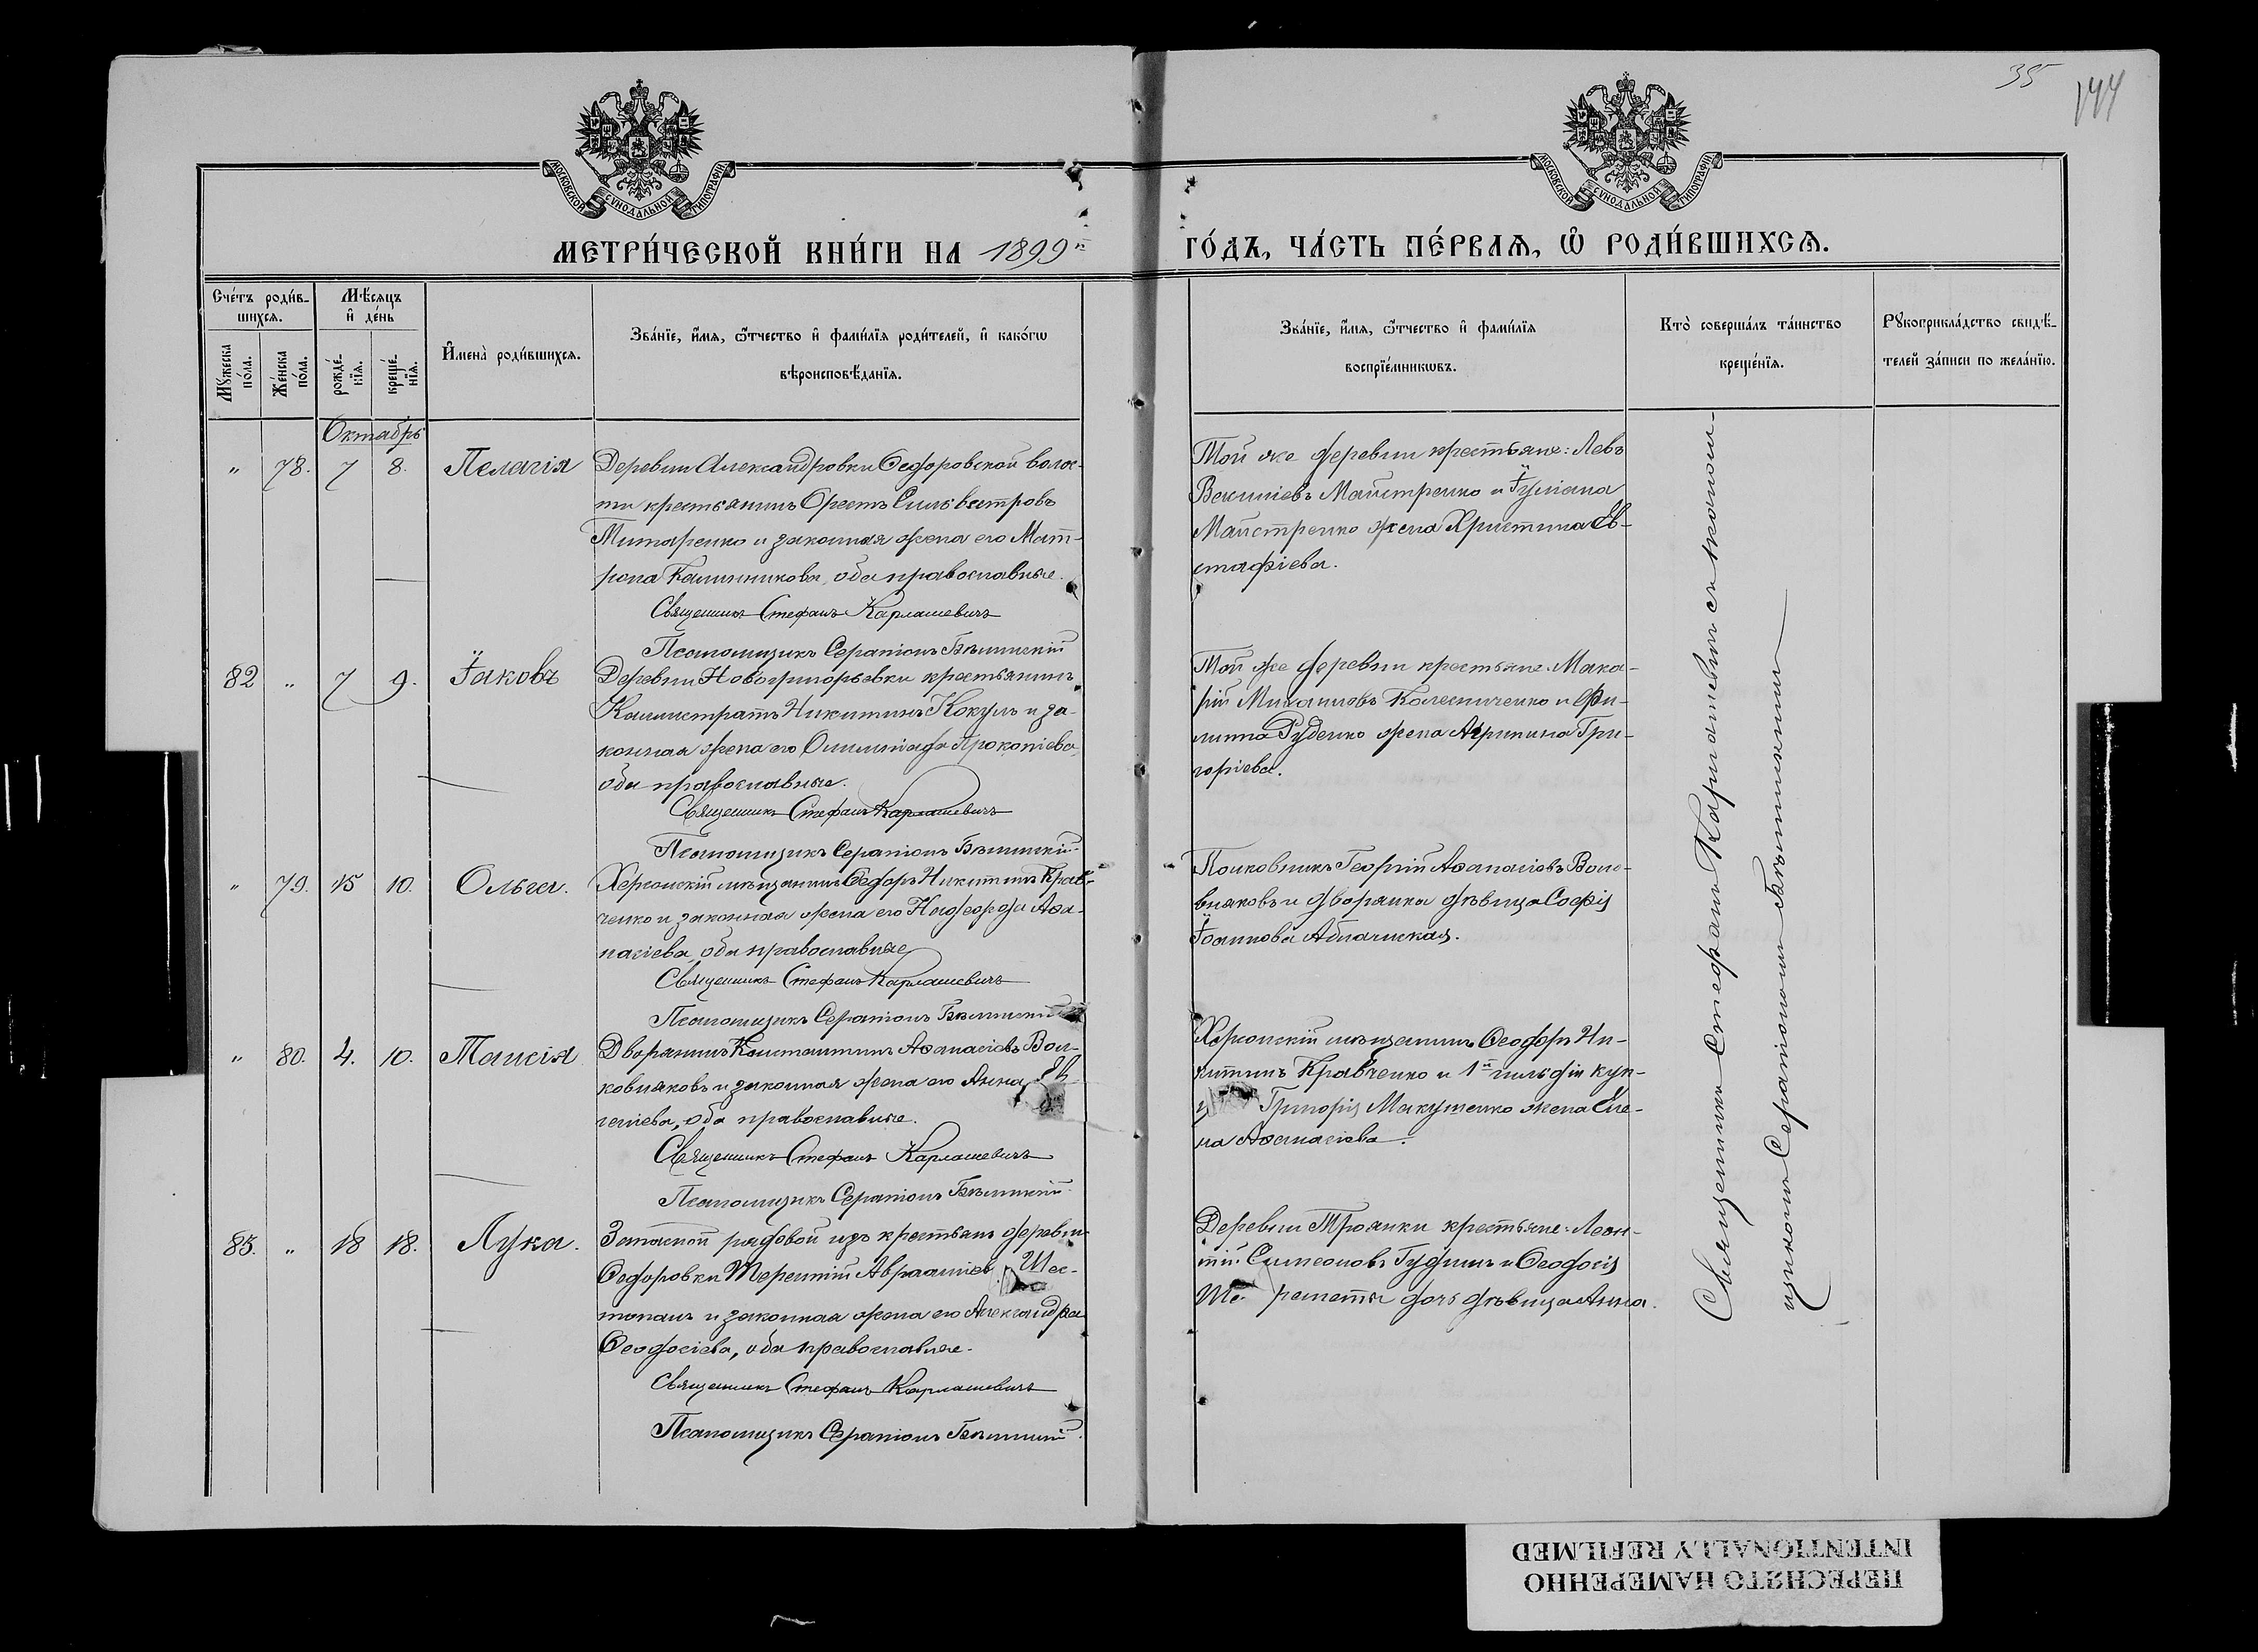 35
144
МОСКОВСКОЙ СѴНОДАЛЬНОЙ ТИПОГРАФІИ
МОСКОВСКОЙ СѴНОДАЛЬНОЙ ТИПОГРАФІИ
МЕТРИ́ЧЕСКОЙ КНИ́ГИ НА 1899й
ГО́ДЪ, ЧА́СТЬ ПЕ́РВАѦ, Ѽ РОДИ́ВШИХСѦ.
Сче́тъ роди́вшихсѧ.
Мꙋжеска по́ла.
Же́нска по́ла.
Мѣ́сѧцъ и҆ де́нь
рожде́нїѧ.
креще́нїѧ.
И҆мена̀ роди́вшихсѧ.
Зва́нїе, и҆́мѧ, ѻ҆́тчество и҆ фами́лїѧ роди́телей, и҆ како́гѡ
вѣроисповѣ́данїѧ.
Зва́нїе, и҆́мѧ, ѻ҆́тчество и҆ фами́лїѧ
воспрїе́мникѡвъ.
Кто̀ соверша́лъ та́инство
креще́нїѧ.
Рꙋкоприкла́дство свидѣ́-
телей за́писи по жела́нїю.
Октябрь
" 78. 7 8. Пелагія
Деревни Александровки Ѳедоровской волос-
ти крестьянинъ Орестъ Сильвестровъ
Титаренко и законная жена его Мат-
рона Калинникова, оба православные.
Священникъ Стефанъ Карлашевичъ
Псаломщикъ Серапіонъ Бѣлинскій
Той же деревни крестьяне: Левъ
Василіевъ Майстренко и Іуліана
Майстренко жена Христина Ев-
стафіева.
82 " 7 9. Іаковъ
Деревни Новогригорьевки крестьянинъ
Каллистратъ Никитинъ Кокулъ и за-
конная жена его Олимпіада Прокопіева,
оба православные.
Священникъ Стефанъ Карлашевичъ
Псаломщикъ Серапіонъ Бѣлинскій
Той же деревни крестьяне: Мака-
рій Михаиловъ Колесниченко и Фи-
липпа Руденко жена Агрипина Гри-
горіева.
" 79. 15 10. Ольга.
Херсонскій мѣщанинъ Ѳеодоръ Никитинъ Крав-
ченко и законная жена его Надежда Аѳа-
насіева, оба православные
Священникъ Стефанъ Карлашевичъ
Псаломщикъ Серапіонъ Бѣлинскій
Полковникъ Георгій Аѳанасіевъ
и дворянка дѣвица Софія
Іоаннова
" 80. 4. 10. Таисія
Дворянинъ Константинъ Аѳанасіевъ
и законная жена его Анна
геніева, оба православные.
Священникъ Стефанъ Карлашевичъ
Псаломщикъ Серапіонъ Бѣлинскій
Херсонскій мѣщанинъ Ѳеодоръ Ни-
китинъ Кравченко и 1й гильдіи куп-
ца Григорія Макушенко жена Еле-
на Аѳанасіева.
83. " 18 18. Лука.
Запасной рядовой изъ крестьянъ деревни
Ѳедоровки Терентій Аврааміев Шес-
топалъ и законная жена его Александра
Ѳеодосіева, оба православные.
Священникъ Стефанъ Карлашевичъ
Псаломщикъ Серапіонъ Бѣлинскій
Деревни Троянки крестьяне: Леон-
тій Симеоновъ Гудимъ и Ѳеодосія
Ше реметы дочь дѣвица Анна.
Священникъ Стефанъ Карлашевичъ съ псалом-
щикомъ Серапіономъ Бѣлинскимъ
ПЕРЕСНЯТО НАМЕРЕННО
INTENTIONALLY REFILMED